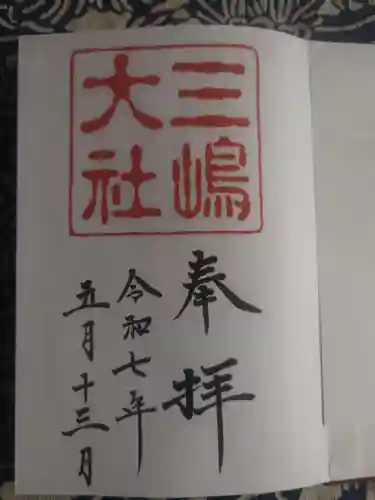 三嶋
大社
奉拝
令和七年
五月十三日